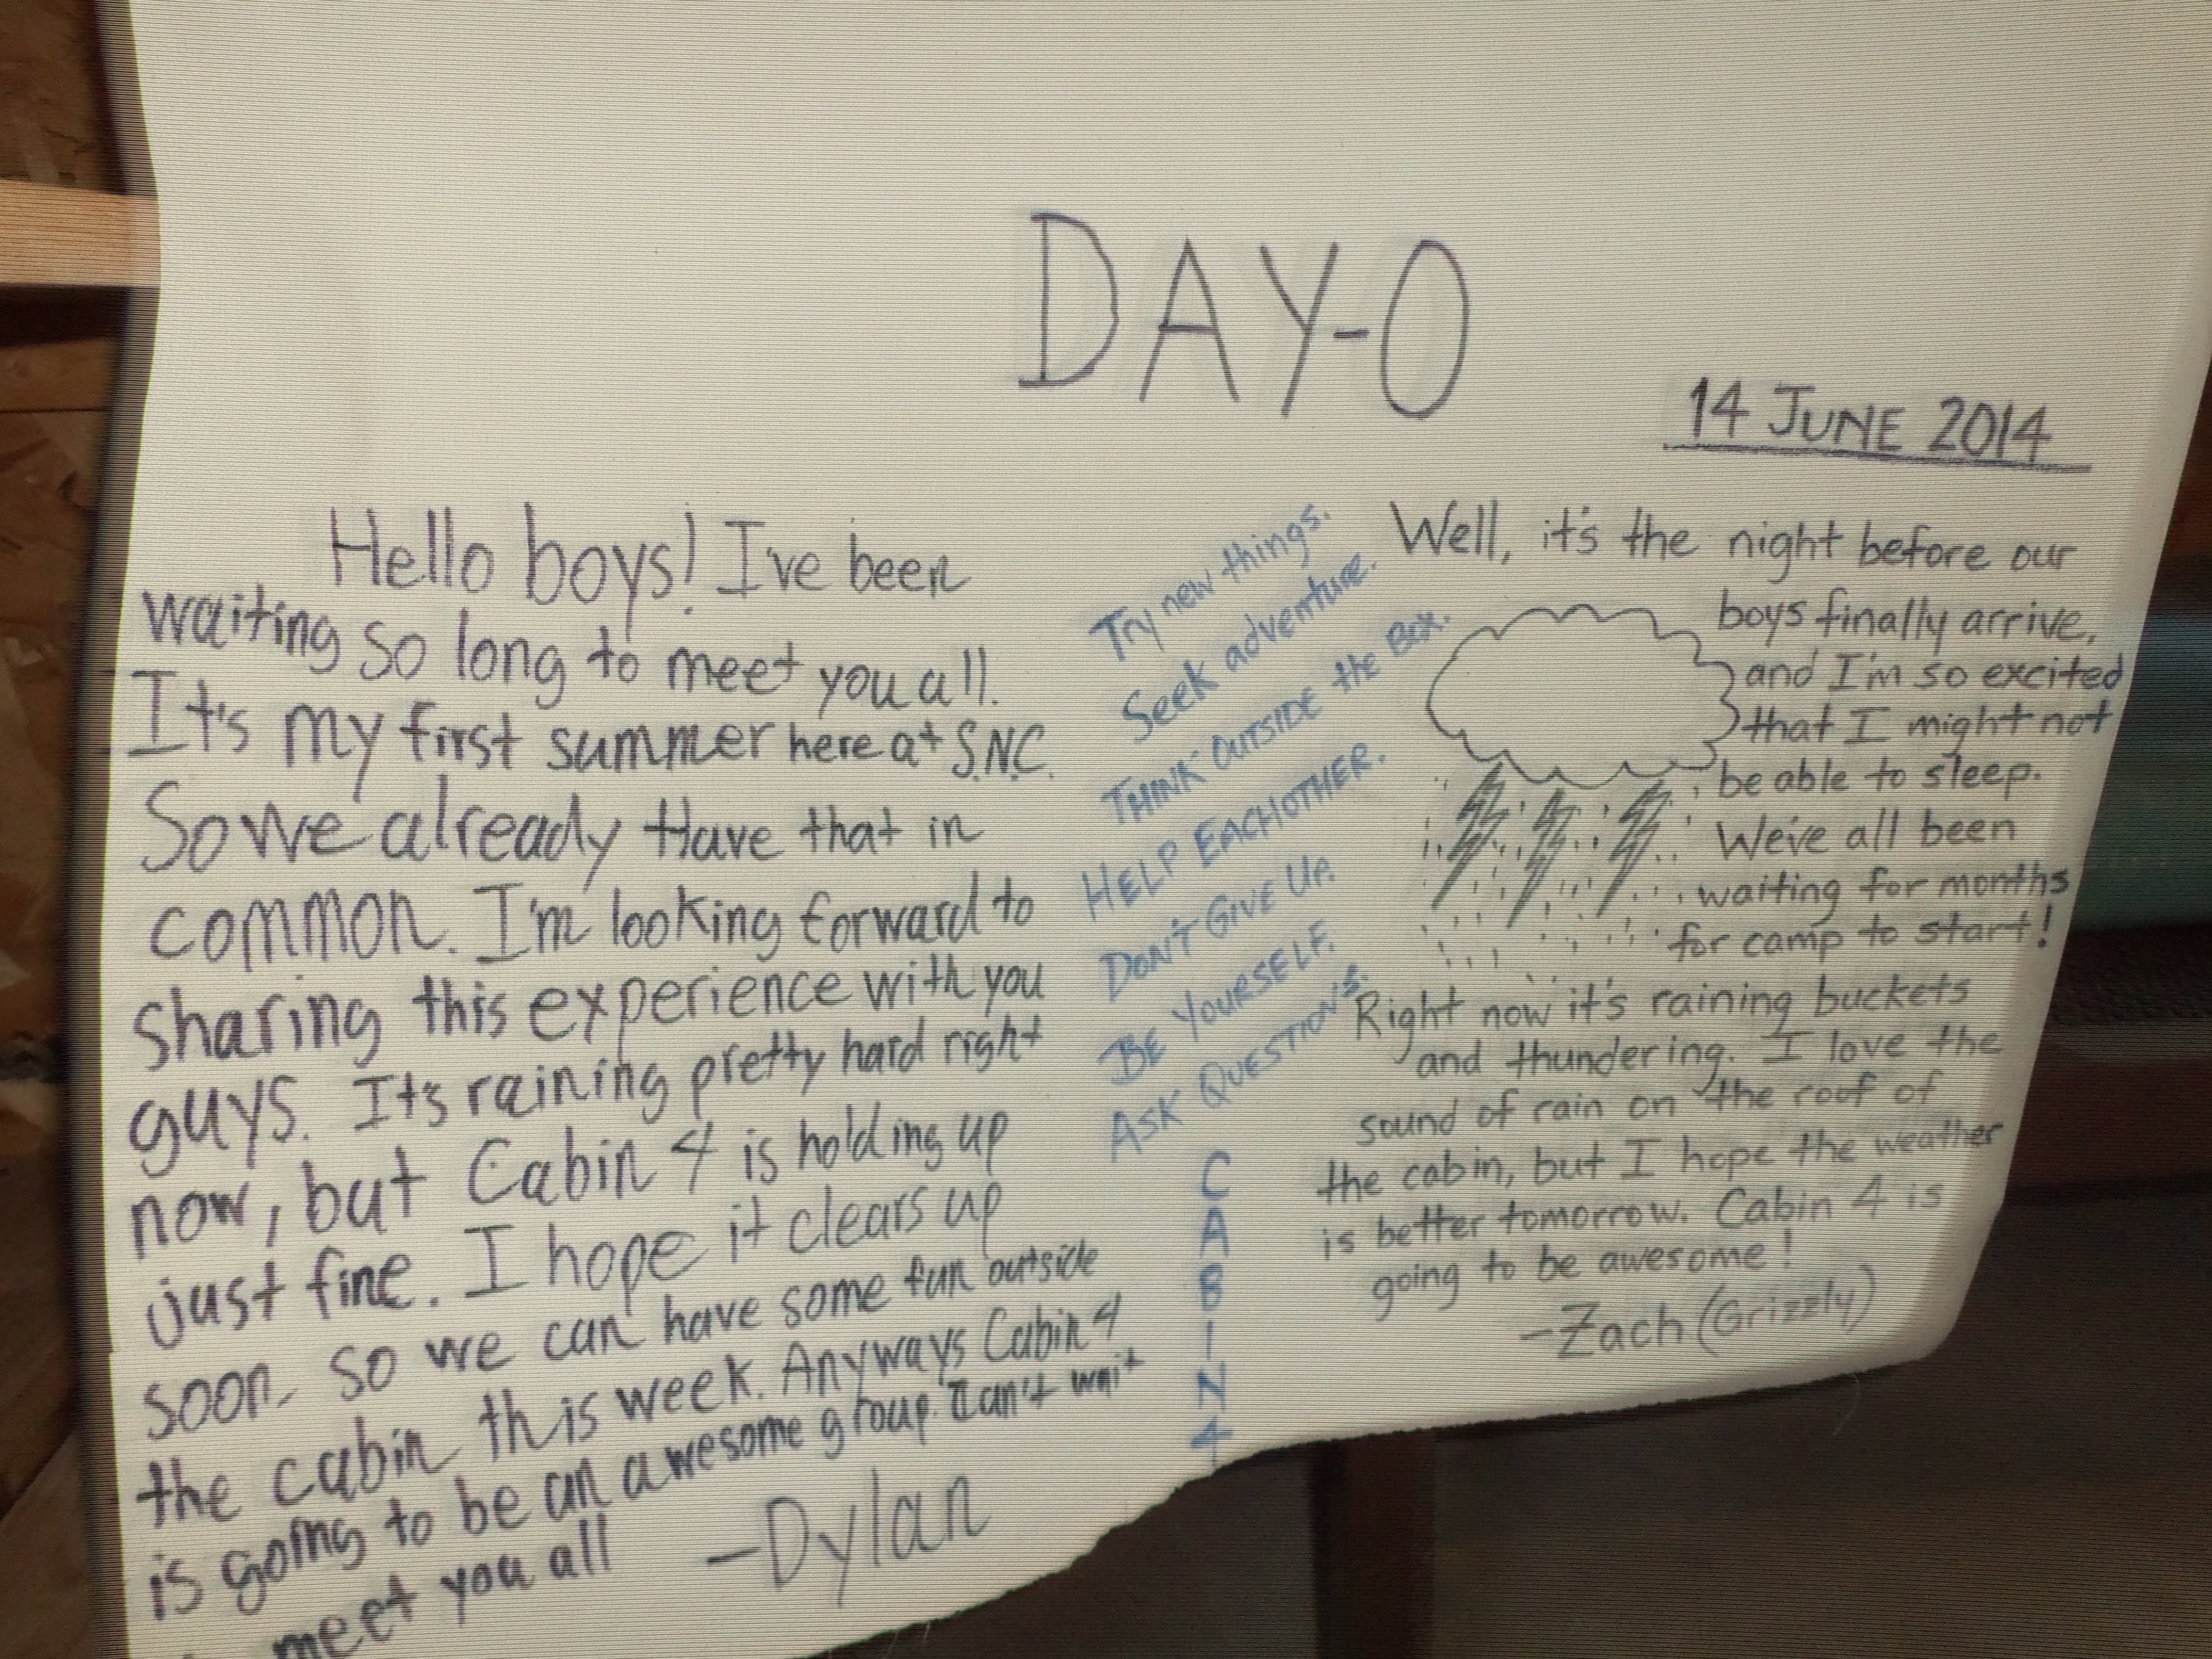 DAY-0
14 JUNE 2014
Hello boys! I've been
waiting so long to meet you all.
It's my first summer here at S.N.C.
So we already Have that in
common. I'm looking forward to
sharing this experience with you
guys. It's raining pretty hard right
now, but Cabin 4 is holding up
just fine. I hope it clears up
soon, so we can have some fun outside
the cabin this week. Anyways Cabin 4
is going to be an awesome group. I can't wait
meet you all
-Dylan
Try new things.
Seek adventure.
THINK OUTSIDE the BOX.
HELP EACHOTHER.
DON'T GIVE UP.
BE YOURSELF.
ASK QUESTIONS.
C
A
B
I
N
4
Well, it's the night before our
boys finally arrive,
and I'm so excited
that I might not
be able to sleep.
We've all been
waiting for months
for camp to start!
Right now it's raining buckets
and thundering. I love the
sound of rain on the roof of
the cabin, but I hope the weather
is better tomorrow. Cabin 4 is
going to be awesome!
-Zach (Grizzly)